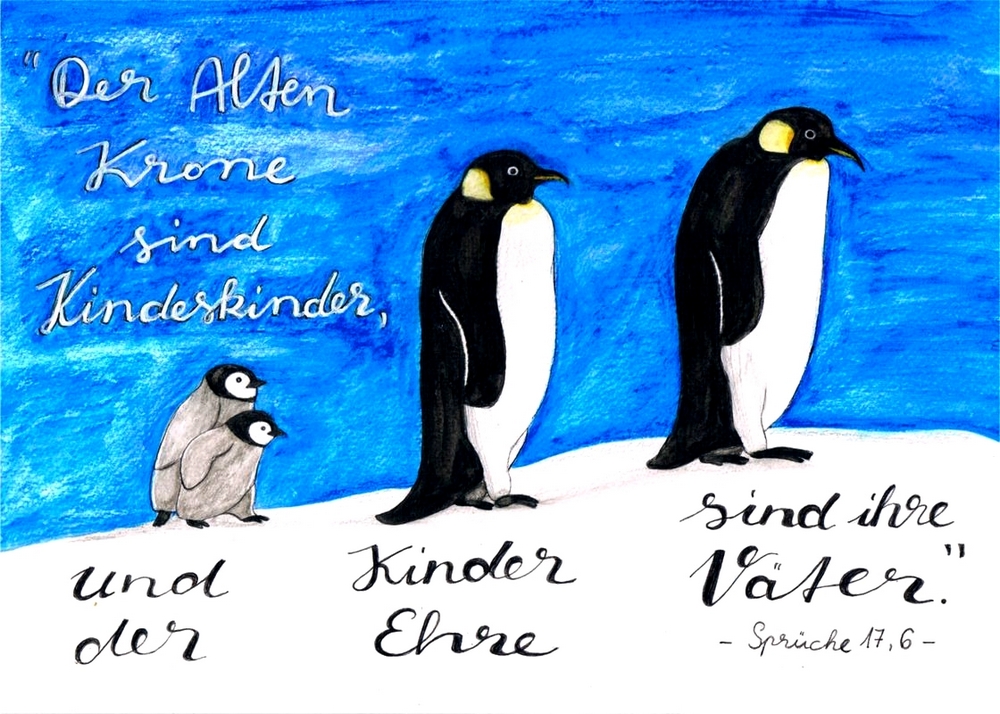 "Der Alten
Krone
sind
Kindeskinder,
und
der
Kinder
Ehre
sind ihre
Väter."
- Sprüche 17,6 -